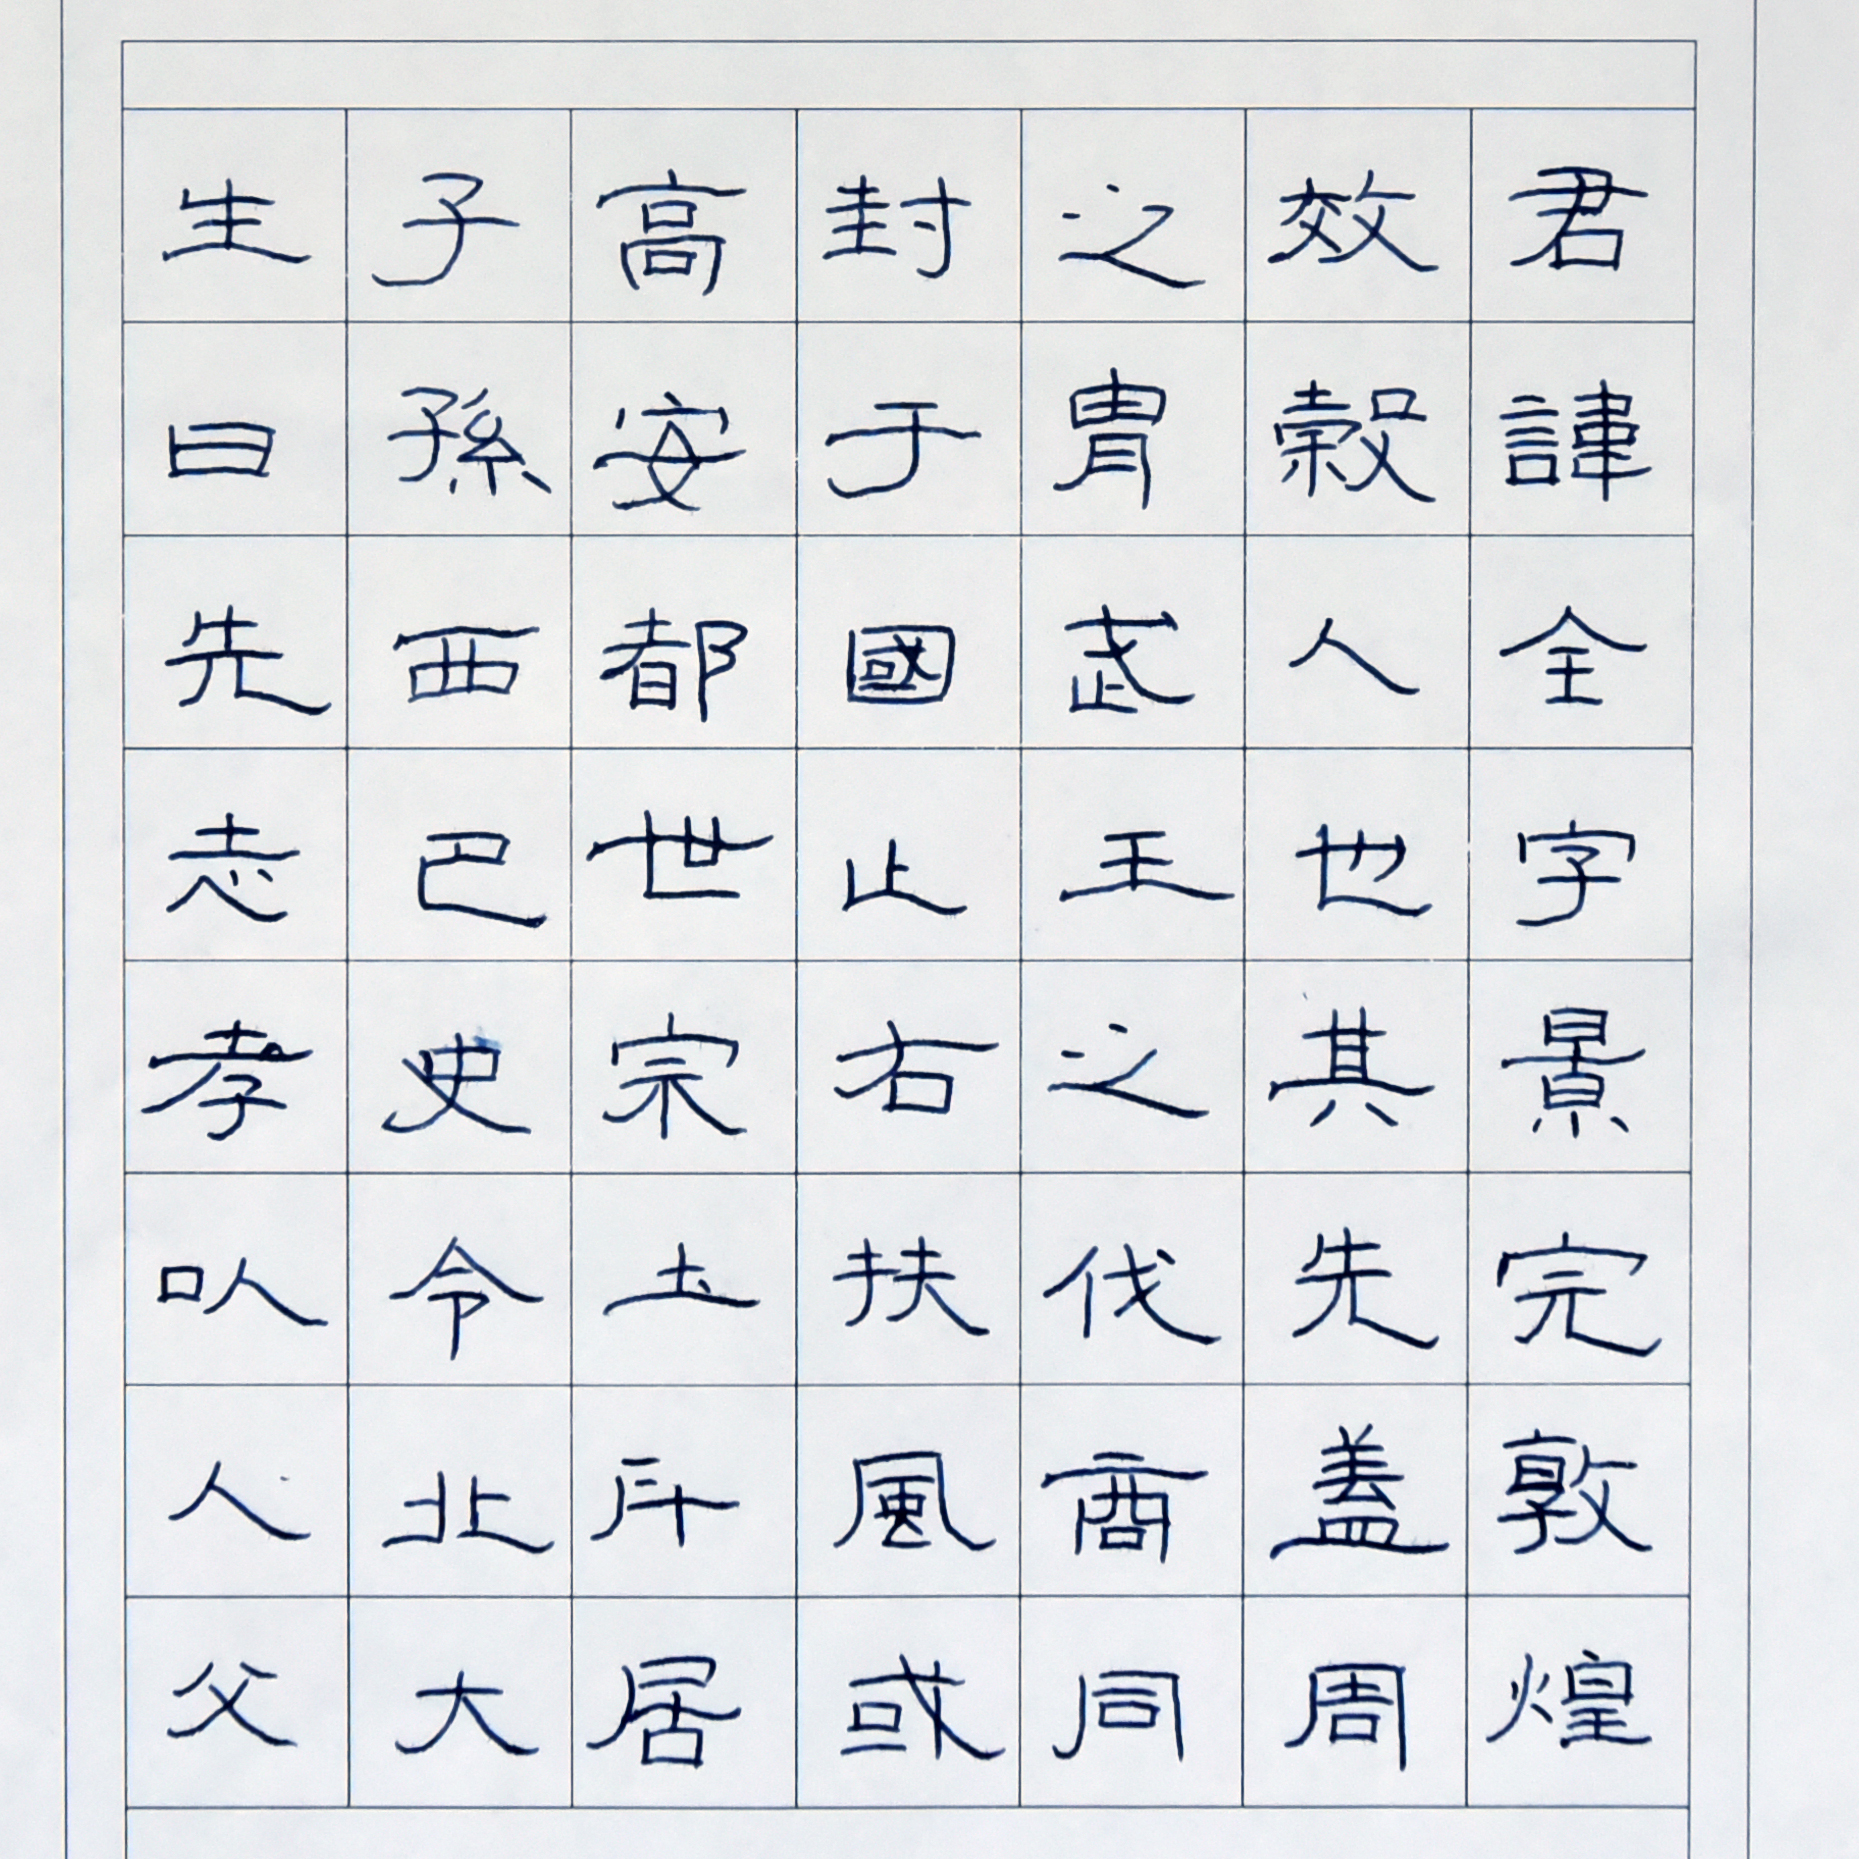 君諱全字景完敦煌
效穀人也其先蓋周
之胄武王之伐商同
封于國止右扶風或
高安都世宗土斥居
子孫西巴史令北大
生曰先志孝以人父